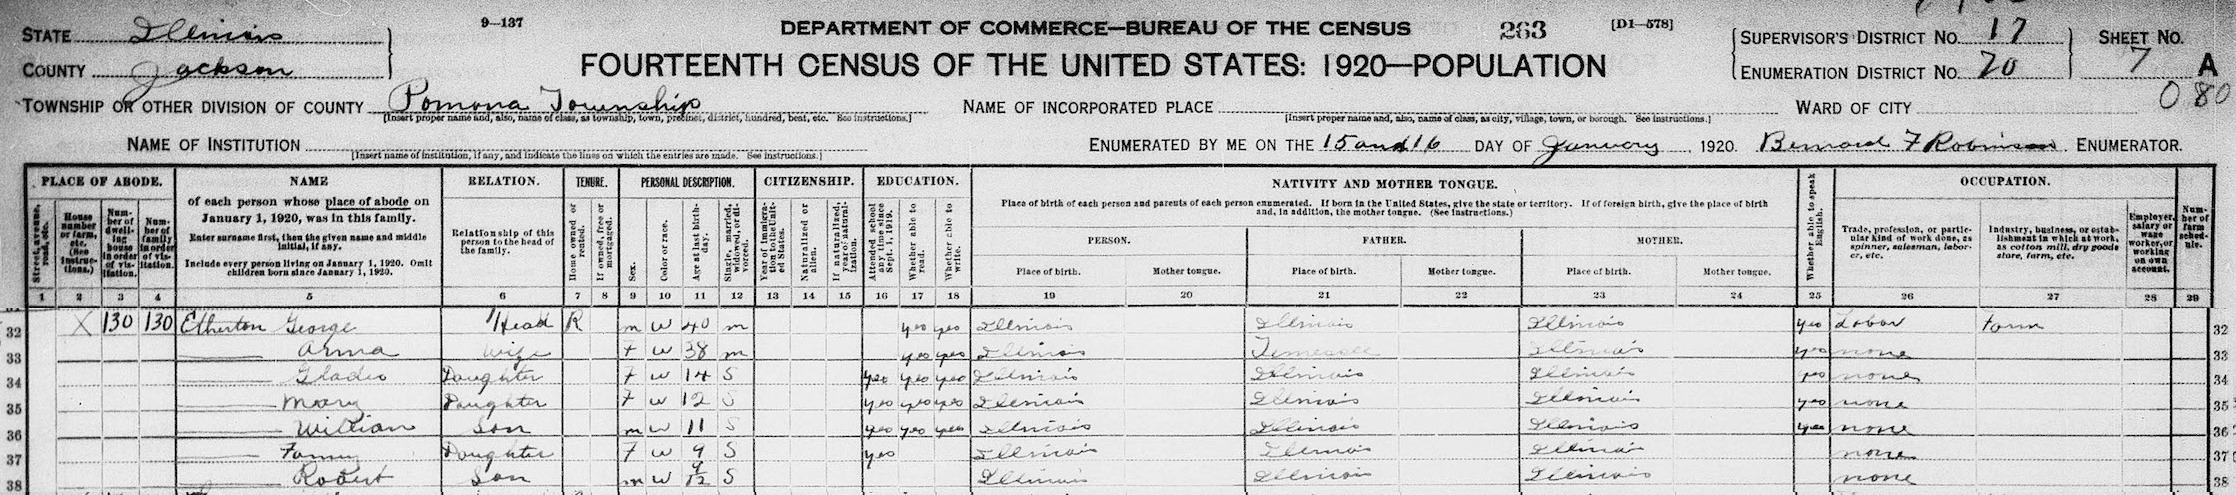 9—137 DEPARTMENT OF COMMERCE—BUREAU OF THE CENSUS 263 [D1—578]
STATE Illinois
COUNTY Jackson
FOURTEENTH CENSUS OF THE UNITED STATES: 1920—POPULATION
SUPERVISOR'S DISTRICT NO. 17 SHEET NO.
ENUMERATION DISTRICT NO. 70 7 A
080
TOWNSHIP OR OTHER DIVISION OF COUNTY Pomona Township NAME OF INCORPORATED PLACE WARD OF CITY
[Insert proper name and, also, name of class, as township, town, precinct, district, hundred, beat, etc. See instructions.] [Insert proper name and, also, name of class, as city, village, town, or borough. See instructions.]
NAME OF INSTITUTION ENUMERATED BY ME ON THE 15 and 16 DAY OF January, 1920. Bernard F Robinson ENUMERATOR.
[Insert name of institution, if any, and indicate the lines on which the entries are made. See instructions.]
PLACE OF ABODE. NAME RELATION. TENURE. PERSONAL DESCRIPTION. CITIZENSHIP. EDUCATION. NATIVITY AND MOTHER TONGUE. OCCUPATION.
Street, avenue, road, etc.
House number or farm, etc. (See instructions.)
Number of dwelling house in order of visitation.
Number of family in order of visitation.
of each person whose place of abode on January 1, 1920, was in this family.
Enter surname first, then the given name and middle initial, if any.
Include every person living on January 1, 1920. Omit children born since January 1, 1920.
Relationship of this person to the head of the family.
Home owned or rented.
If owned, free or mortgaged.
Sex.
Color or race.
Age at last birthday.
Single, married, widowed, or divorced.
Year of immigration to the United States.
Naturalized or alien.
If naturalized, year of naturalization.
Attended school any time since Sept. 1, 1919.
Whether able to read.
Whether able to write.
Place of birth of each person and parents of each person enumerated. If born in the United States, give the state or territory. If of foreign birth, give the place of birth and, in addition, the mother tongue. (See instructions.)
PERSON. FATHER. MOTHER.
Place of birth. Mother tongue. Place of birth. Mother tongue. Place of birth. Mother tongue.
Whether able to speak English.
Trade, profession, or particular kind of work done, as spinner, salesman, laborer, etc.
Industry, business, or establishment in which at work, as cotton mill, dry goods store, farm, etc.
Employer, salary or wage worker, or working on own account.
Number of farm schedule.
1 2 3 4 5 6 7 8 9 10 11 12 13 14 15 16 17 18 19 20 21 22 23 24 25 26 27 28 29
32 X 130 130 Etherton George Head R m W 40 m yes yes Illinois Illinois Illinois yes Labor farm 32
33 Anna wife F W 38 m yes yes Illinois Tennessee Illinois yes none 33
34 Gladis Daughter F W 14 S yes yes yes Illinois Illinois Illinois yes none 34
35 Mary Daughter F W 12 S yes yes yes Illinois Illinois Illinois yes none 35
36 William Son m W 11 S yes yes yes Illinois Illinois Illinois yes none 36
37 Fanny Daughter F W 9 S yes Illinois Illinois Illinois none 37
38 Robert Son m W 9/12 S Illinois Illinois Illinois none 38